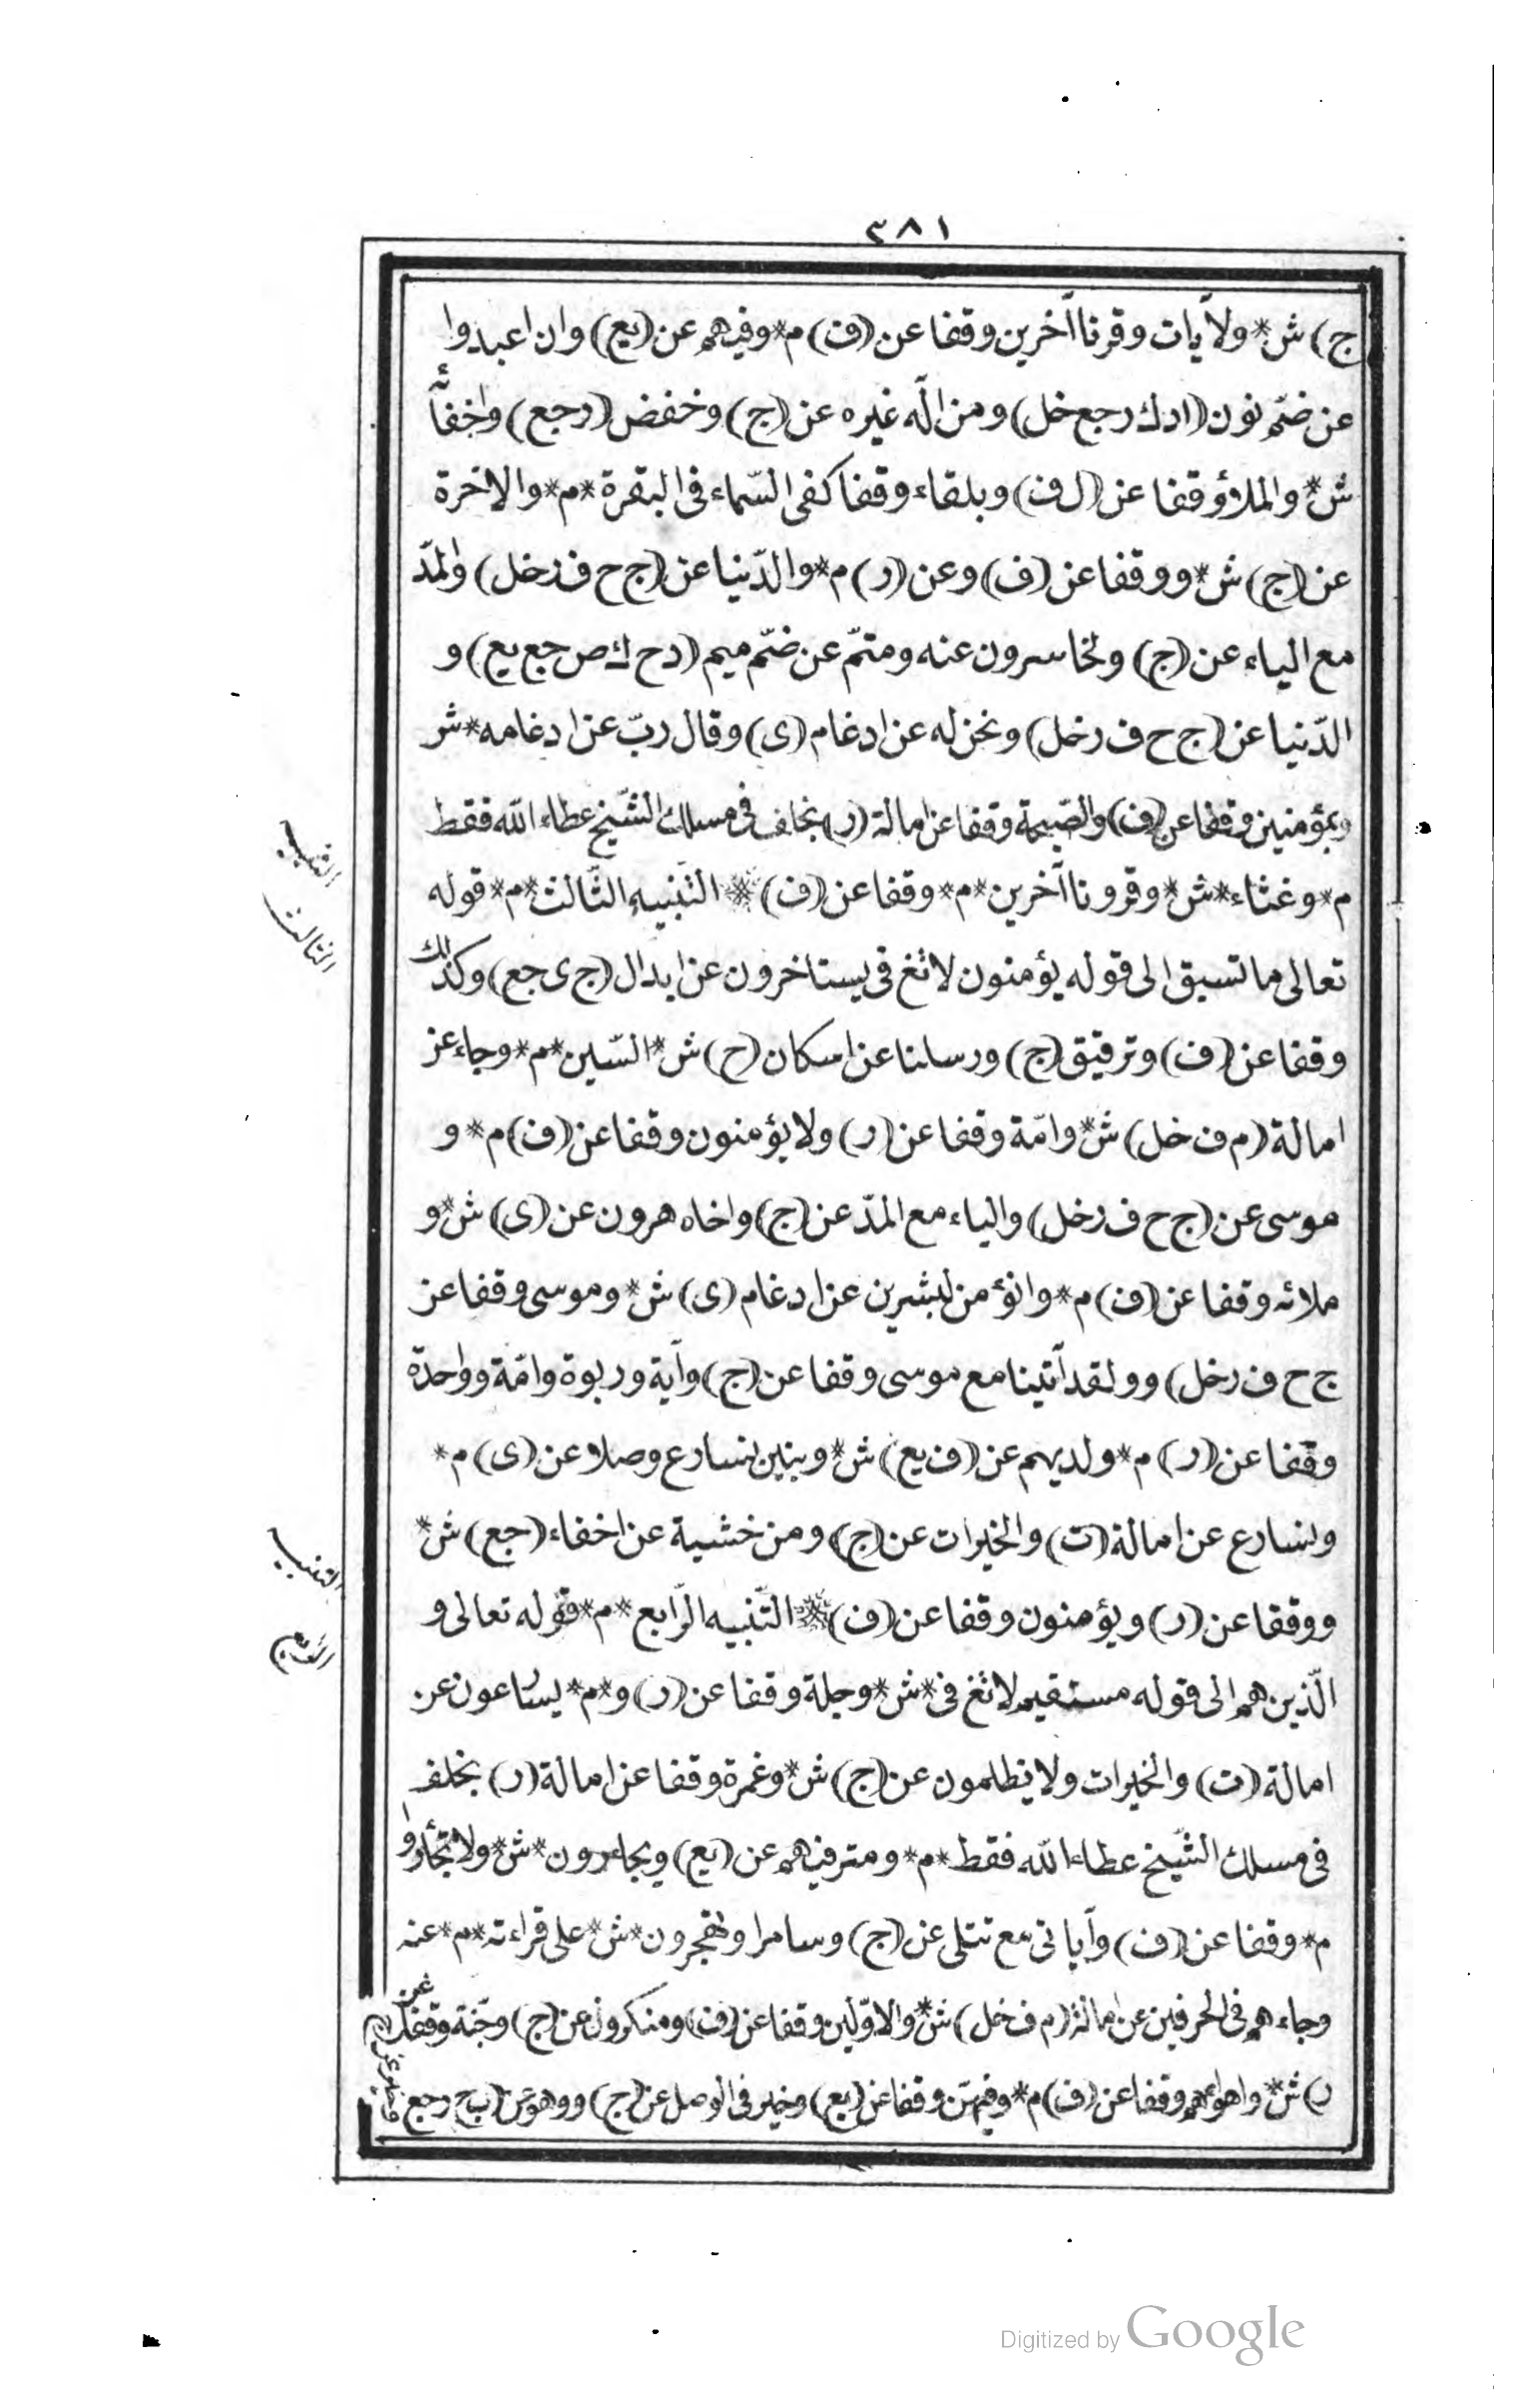 ٣٨١
ج) ش* ولآيات وقرنا آخرين وقفا عن (ف) م* وفيهم عن (يع) وان اعبدوا
عن ضمّ نون (ادك رجع خل) ومن اله غيره عن (ج) وخفض (رجع) واخفأ
ش* والملأ وقفا عن (ل ف) وبلقاء وقفا كفى السّماء فى البقرة *م* والاخرة
عن (ج) ش* ووقفا عن (ف) وعن (ر) م* والدّنيا عن (ج ح ف رخل) والمدّ
مع الياء عن (ج) ولخاسرون عنه ومتمّ عن ضمّ ميم (دح ك ص جع يع) و
الدّنيا عن (ج ح ف رخل) ونحن له عن ادغام (ى) وقال ربّ عن ادغامه *ش
وبمؤمنين وقفا عن (ف) والصّيحة وقفا عن امالة (ر) بخلف فى مسلك الشّيخ عطاء الله فقط
م* وغثاء *ش* وقرونا آخرين *م* وقفا عن (ف) * التّنبيه الثّالث *م* قوله
تعالى ما تسبق الى قوله يؤمنون لا تغ فى يستاخرون عن ابدال (ج ى جع) وكذلك
وقفا عن (ف) وترقيق (ج) ورسلنا عن اسكان (ح) ش* السّين *م* وجاء عن
امالة (م ف خل) ش* وامّة وقفا عن (ر) ولا يؤمنون وقفا عن (ف) م* و
موسى عن (ج ح ف رخل) والياء مع المدّ عن (ج) واخاه هرون عن (ى) ش* و
ملائه وقفا عن (ف) م* وانؤمن لبشرين عن ادغام (ى) ش* وموسى وقفا عن
ج ح ف رخل) وولقد آتينا مع موسى وقفا عن (ج) وآية وربوة وامّة وواحدة
وقفا عن (ر) م* ولديهم عن (ف يع) ش* وبنين نسارع وصلا عن (ى) م*
ونسارع عن امالة (ت) والخيرات عن (ج) ومن خشية عن اخفاء (جع) ش*
ووقفا عن (ر) ويؤمنون وقفا عن (ف) * التّنبيه الرّابع *م* قوله تعالى و
الّذين هم الى قوله مستقيم لا تغ فى *ش* وجلة وقفا عن (ر) و*م* يسارعون عن
امالة (ت) والخيرات ولا يظلمون عن (ج) ش* وغمرة وقفا عن امالة (ر) بخلف
فى مسلك الشّيخ عطاء الله فقط *م* ومترفيهم عن (يع) ويجارون *ش* ولا تجأروا
م* وقفا عن (ف) وآياتى مع تتلى عن (ج) وسامرا وتهجرون *ش* على قراءته *م* عنه
وجاءهم فى الحرفين عن امالة (م ف خل) ش* والاوّلين وقفا عن (ف) ومنكرون عن (ج) وجّنة وقفا عن
ر) ش* واهواءهم وقفا عن (ف) م* وفيهنّ وقفا عن (يع) وخير فى الوصل عن (ج) ووهو عن (ب ح رجع
التنبيه
الثالث
التنبيه
الرابع
Digitized by Google